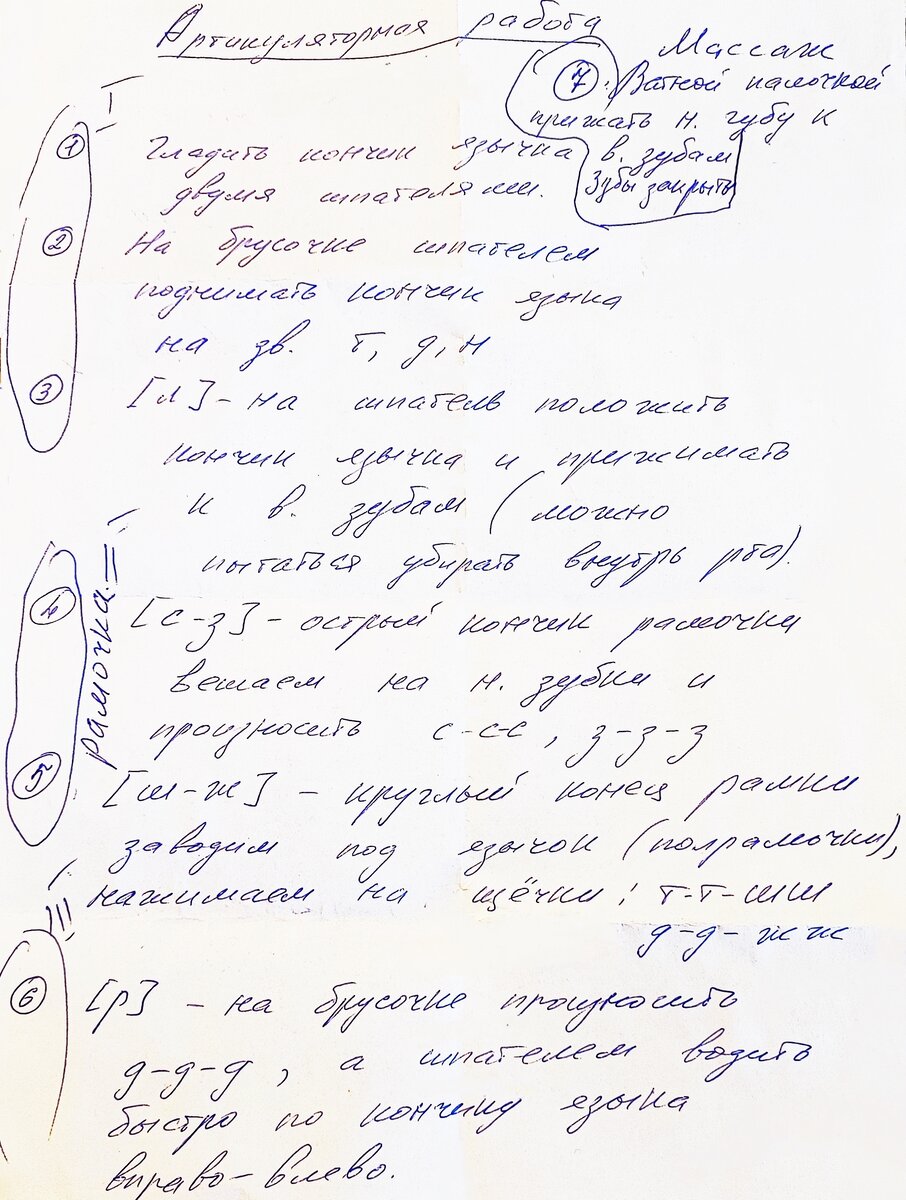 Артикуляторная работа
Массаж
⑦. Ватной палочкой
прижать н. губу к
в. зубам
Зубы закрыть
I
① Гладить кончик язычка
двумя шпателями.
② На брусочке шпателем
поднимать кончик языка
на зв. т, д, н
③ [л] - на шпатель положить
кончик язычка и прижимать
к в. зубам (можно
пытаться убирать внутрь рта).
II
Рамочка.
④ [с-з] - острый кончик рамочки
вешаем на н. зубки и
произносить с-с-с, з-з-з
⑤ [ш-ж] - круглый конец рамки
заводим под язычок (полрамочки),
нажимаем на щёчки: т-т-шш
д-д-жж
III
⑥ [р] - на брусочке произносить
д-д-д, а шпателем водить
быстро по кончику языка
вправо-влево.